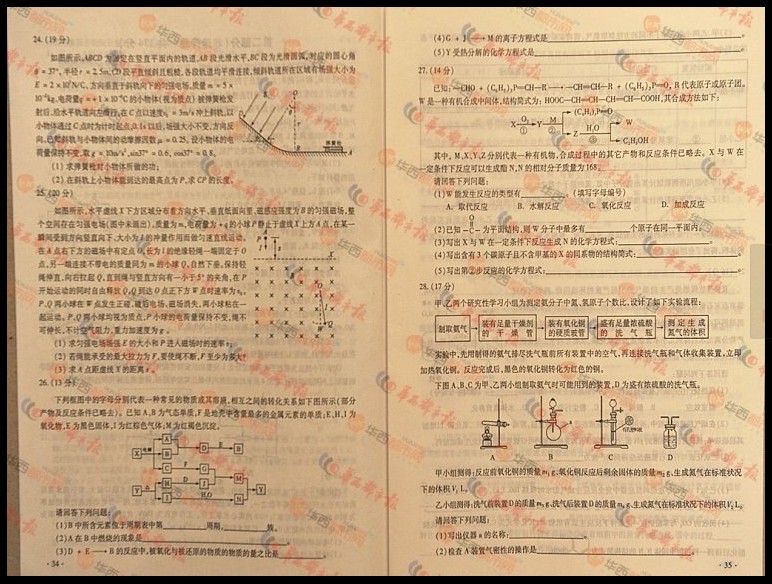 24.(19分)
如图所示,ABCD为固定在竖直平面内的轨道,AB段光滑水平,BC段为光滑圆弧,对应的圆心角
θ = 37°,半径r = 2.5m,CD段平直倾斜且粗糙,各段轨道均平滑连接,倾斜轨道所在区域有场强大小为
E = 2×10⁵N/C、方向垂直于斜轨向下的匀强电场。质量m = 5×
10⁻²kg、电荷量q = +1×10⁻⁶C的小物体(视为质点)被弹簧枪发
射后,沿水平轨道向左滑行,在C点以速度v₀ = 3m/s冲上斜轨。以
小物体通过C点时为计时起点,0.1s以后,场强大小不变,方向反
向。已知斜轨与小物体间的动摩擦因数μ = 0.25。设小物体的电
荷量保持不变,取g = 10m/s²,sin37° = 0.6,cos37° = 0.8。
(1)求弹簧枪对小物体所做的功;
(2)在斜轨上小物体能到达的最高点为P,求CP的长度。
25.(20分)
如图所示,水平虚线X下方区域分布着方向水平、垂直纸面向里、磁感应强度为B的匀强磁场,整
个空间存在匀强电场(图中未画出)。质量为m、电荷量为+q的小球P静止于虚线X上方A点,在某一
瞬间受到方向竖直向下、大小为I的冲量作用而做匀速直线运动。
在A点右下方的磁场中有定点O,长为l的绝缘轻绳一端固定于O
点,另一端连接不带电的质量同为m的小球Q,自然下垂。保持轻
绳伸直,向右拉起Q,直到绳与竖直方向有一小于5°的夹角,在P
开始运动的同时自由释放Q,Q到达O点正下方W点时速率为v₀。
P、Q两小球在W点发生正碰,碰后电场、磁场消失,两小球粘在一
起运动。P、Q两小球均视为质点,P小球的电荷量保持不变,绳不
可伸长,不计空气阻力,重力加速度为g。
(1)求匀强电场场强E的大小和P进入磁场时的速率v;
(2)若绳能承受的最大拉力为F,要使绳不断,F至少为多大?
(3)求A点距虚线X的距离s。
26.(13分)
下列框图中的字母分别代表一种常见的物质或其溶液,相互之间的转化关系如下图所示(部分
产物及反应条件已略去)。已知A、B为气态单质,F是地壳中含量最多的金属元素的单质;E、H、I为
氧化物,E为黑色固体,I为红棕色气体;M为红褐色沉淀。
请回答下列问题:
(1)B中所含元素位于周期表中第 周期, 族。
(2)A在B中燃烧的现象是 。
(3)D + E ⟶ B的反应中,被氧化与被还原的物质的物质的量之比是 。
· 34 ·
(4)G + J ⟶ M的离子方程式是 。
(5)Y受热分解的化学方程式是 。
27.(14分)
已知:—CHO + (C₆H₅)₃P=CH—R ⟶ —CH=CH—R + (C₆H₅)₃P=O,R代表原子或原子团。
W是一种有机合成中间体,结构简式为:HOOC—CH=CH—CH=CH—COOH,其合成方法如下:
X O₂ ① Y M ② (C₆H₅)₃P=O Z H₂O ③ W C₂H₅OH
其中,M、X、Y、Z分别代表一种有机物,合成过程中的其它产物和反应条件已略去。X与W在
一定条件下反应可以生成酯N,N的相对分子质量为168。
请回答下列问题:
(1)W能发生反应的类型有 。(填写字母编号)
A. 取代反应 B. 水解反应 C. 氧化反应 D. 加成反应
(2)已知 —C(=O)— 为平面结构,则W分子中最多有 个原子在同一平面内。
(3)写出X与W在一定条件下反应生成N的化学方程式: 。
(4)写出含有3个碳原子且不含甲基的X的同系物的结构简式: 。
(5)写出第②步反应的化学方程式: 。
28.(17分)
甲、乙两个研究性学习小组为测定氨分子中氮、氢原子个数比,设计了如下实验流程:
制取氨气 装有足量干燥剂的干燥管 装有氧化铜的硬质玻管 盛有足量浓硫酸的洗气瓶 测定生成氮气的体积
实验中,先用制得的氨气排尽洗气瓶前所有装置中的空气,再连接洗气瓶和气体收集装置,立即
加热氧化铜。反应完成后,黑色的氧化铜转化为红色的铜。
下图A、B、C为甲、乙两小组制取氨气时可能用到的装置,D为盛有浓硫酸的洗气瓶。
A B C D
甲小组测得:反应前氧化铜的质量m₁ g、氧化铜反应后剩余固体的质量m₂ g、生成氮气在标准状况
下的体积V₁ L。
乙小组测得:洗气前装置D的质量m₃ g、洗气后装置D的质量m₄ g、生成氮气在标准状况下的体积V₂ L。
请回答下列问题:
(1)写出仪器a的名称: 。
(2)检查A装置气密性的操作是 。
· 35 ·